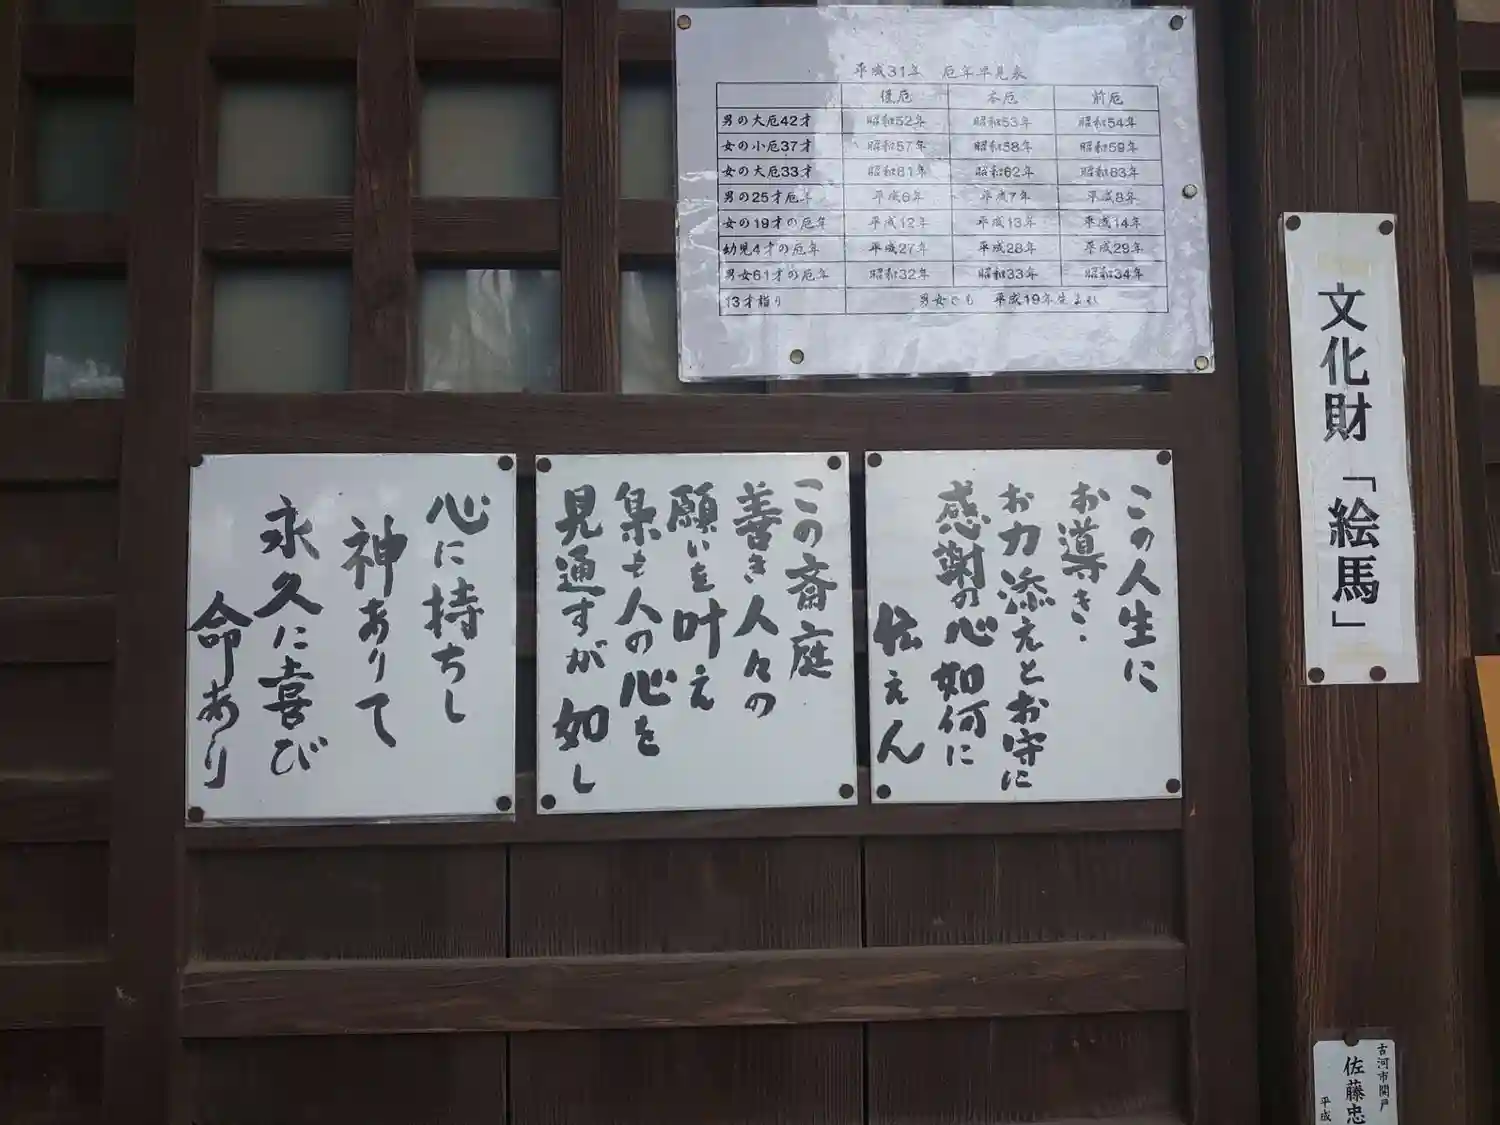 平成31年 厄年早見表
後厄 本厄 前厄
男の大厄42才 昭和52年 昭和53年 昭和54年
女の小厄37才 昭和57年 昭和58年 昭和59年
女の大厄33才 昭和61年 昭和62年 昭和63年
男の25才厄年 平成6年 平成7年 平成8年
女の19才の厄年 平成12年 平成13年 平成14年
幼児4才の厄年 平成27年 平成28年 平成29年
男女61才の厄年 昭和32年 昭和33年 昭和34年
13才詣り 男女でも 平成19年生まれ
文化財「絵馬」
この人生に
お導き・
お力添えとお守に
感謝の心如何に
伝えん
この斎庭
善き人々の
願いを叶え
梟も人の心を
見通すが如し
心に持ちし
神ありて
永久に喜び
命あり
古河市関戸
佐藤忠
平成